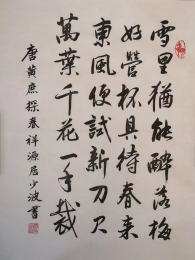 雪里犹能醉落梅
好營杯具待春来
東風便試新刀尺
萬葉千花一手裁
唐黄庶探春祥源居少波書